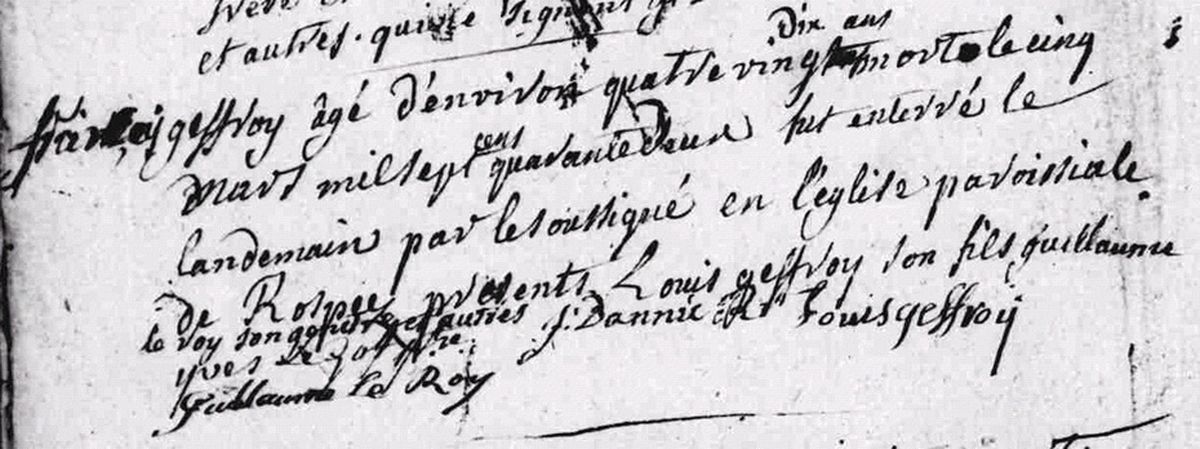 et autres. qui ne signent
Dix ans
françois geffroy âgé d'énviron quatre vingt mort le cinq
mars mil sept cens quarante deux fut enterré le
landemain par le soussigné en l'église paroissiale
De Rospez presents Louis geffroy son fils guillaume
le roy son gendre et autres J: Dannic Louis geffroÿ
yves Le
Guillaume Le Roy